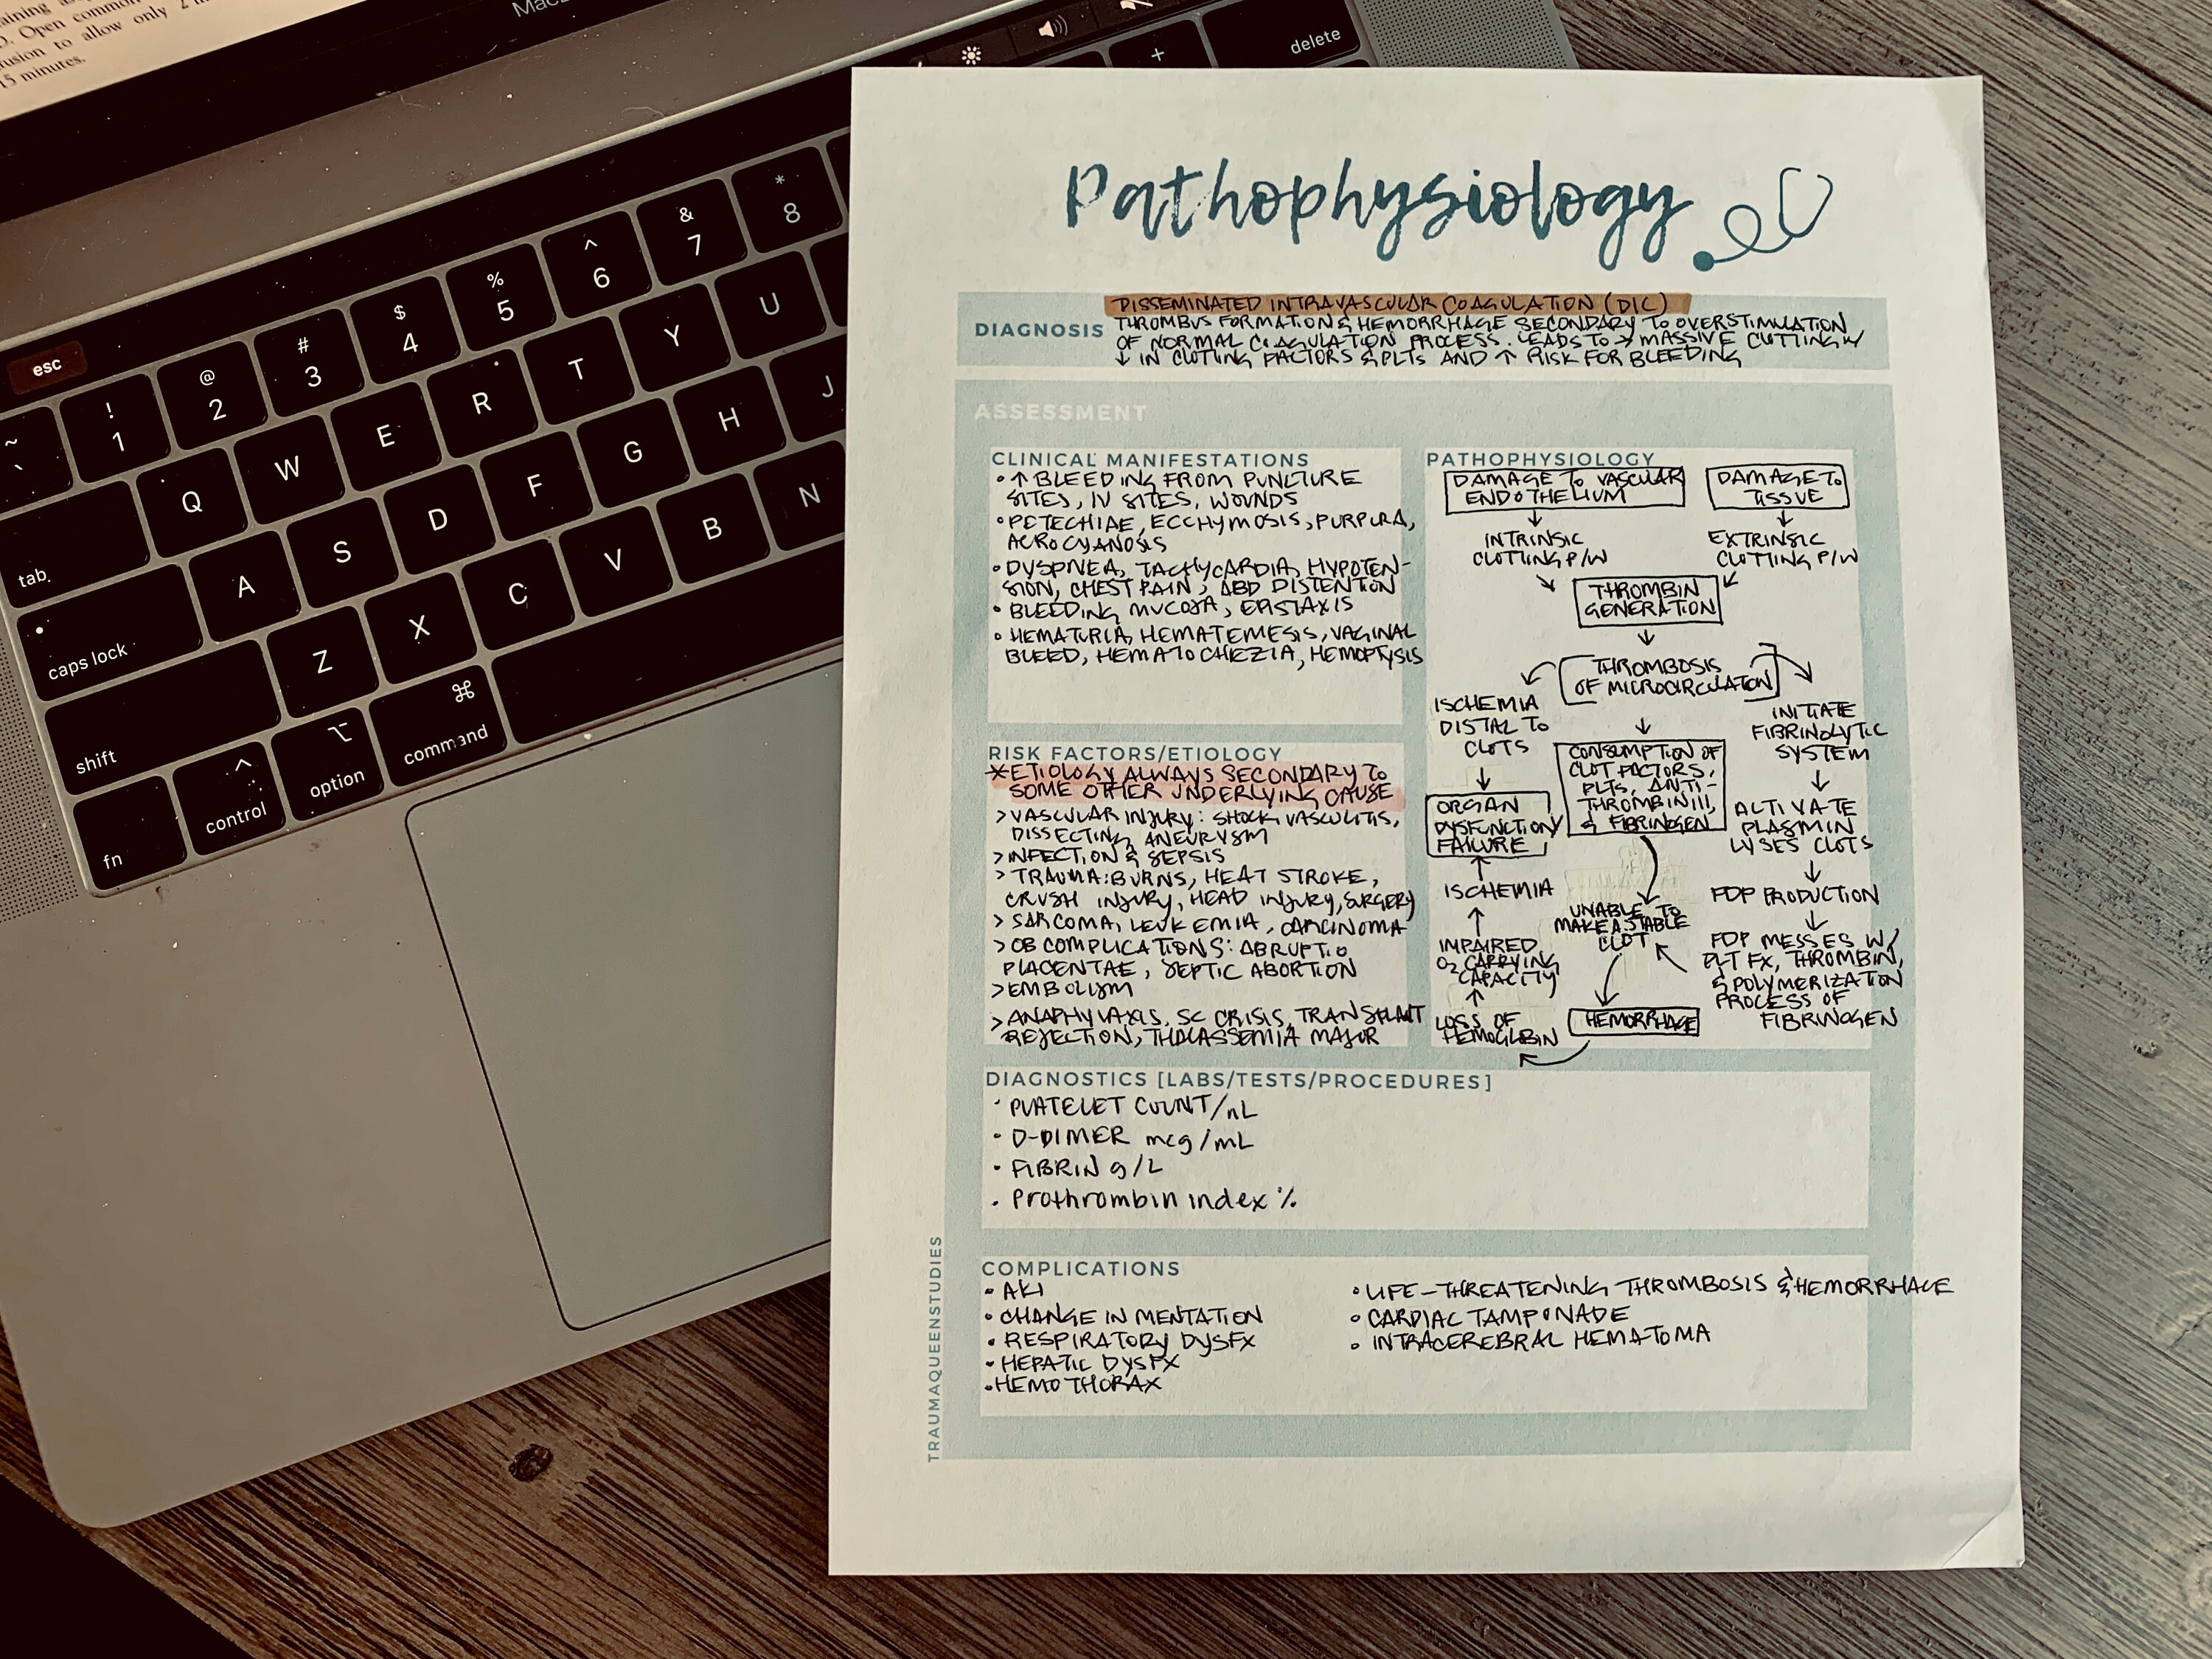 Open common
fusion to allow only 2
15 minutes.
MacB
delete
+
esc
~ ! @ # $ % ^ & *
` 1 2 3 4 5 6 7 8
tab Q W E R T Y U
caps lock A S D F G H J
shift Z X C V B N
fn control option command
^ ⌥ ⌘
Pathophysiology
DIAGNOSIS
DISSEMINATED INTRAVASCULAR COAGULATION (DIC)
THROMBUS FORMATION & HEMORRHAGE SECONDARY TO OVERSTIMULATION
OF NORMAL COAGULATION PROCESS. LEADS TO → MASSIVE CLOTTING W/
↓ IN CLOTTING FACTORS & PLTS AND ↑ RISK FOR BLEEDING
ASSESSMENT
CLINICAL MANIFESTATIONS
• ↑ BLEEDING FROM PUNCTURE
SITES, IV SITES, WOUNDS
• PETECHIAE, ECCHYMOSIS, PURPURA,
ACROCYANOSIS
• DYSPNEA, TACHYCARDIA, HYPOTEN-
SION, CHEST PAIN, ABD DISTENTION
• BLEEDING MUCOSA, EPISTAXIS
• HEMATURIA, HEMATEMESIS, VAGINAL
BLEED, HEMATOCHEZIA, HEMOPTYSIS
RISK FACTORS/ETIOLOGY
*ETIOLOGY ALWAYS SECONDARY TO
SOME OTHER UNDERLYING CAUSE
> VASCULAR INJURY: SHOCK, VASCULITIS,
DISSECTING ANEURYSM
> INFECTION & SEPSIS
> TRAUMA: BURNS, HEAT STROKE,
CRUSH INJURY, HEAD INJURY, SURGERY
> SARCOMA, LEUKEMIA, CARCINOMA
> OB COMPLICATIONS: ABRUPTIO
PLACENTAE, SEPTIC ABORTION
> EMBOLISM
> ANAPHYLAXIS, SC CRISIS, TRANSPLANT
REJECTION, THALASSEMIA MAJOR
PATHOPHYSIOLOGY
DAMAGE TO VASCULAR
ENDOTHELIUM
DAMAGE TO
TISSUE
INTRINSIC
CLOTTING P/W
EXTRINSIC
CLOTTING P/W
THROMBIN
GENERATION
THROMBOSIS
OF MICROCIRCULATION
ISCHEMIA
DISTAL TO
CLOTS
ORGAN
DYSFUNCTION/
FAILURE
ISCHEMIA
IMPAIRED
O2 CARRYING
CAPACITY
LOSS OF
HEMOGLOBIN
CONSUMPTION OF
CLOT FACTORS,
PLTS, ANTI-
THROMBIN III,
& FIBRINOGEN
UNABLE TO
MAKE A STABLE
CLOT
HEMORRHAGE
INITIATE
FIBRINOLYTIC
SYSTEM
ACTIVATE
PLASMIN
LYSES CLOTS
FDP PRODUCTION
FDP MESSES W/
PLT FX, THROMBIN,
& POLYMERIZATION
PROCESS OF
FIBRINOGEN
DIAGNOSTICS [LABS/TESTS/PROCEDURES]
• PLATELET COUNT/nL
• D-DIMER mcg/mL
• FIBRIN g/L
• Prothrombin index %
COMPLICATIONS
• AKI
• CHANGE IN MENTATION
• RESPIRATORY DYSFX
• HEPATIC DYSFX
• HEMOTHORAX
• LIFE-THREATENING THROMBOSIS & HEMORRHAGE
• CARDIAC TAMPONADE
• INTRACEREBRAL HEMATOMA
TRAUMAQUEENSTUDIES